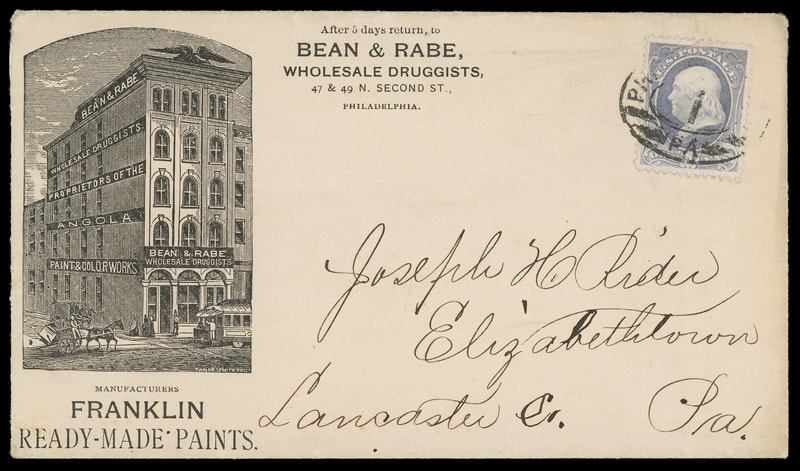 After 5 days return, to
BEAN & RABE,
WHOLESALE DRUGGISTS,
47 & 49 N. SECOND ST.,
PHILADELPHIA.
U.S. POSTAGE
PH
1
PA
BEAN & RABE
WHOLESALE DRUGGISTS.
PROPRIETORS OF THE
ANGOLA
PAINT & COLOR WORKS.
BEAN & RABE
WHOLESALE DRUGGISTS
MANUFACTURERS
FRANKLIN
READY-MADE PAINTS.
Joseph H Rider
Elizabethtown
Lancaster Co. Pa.